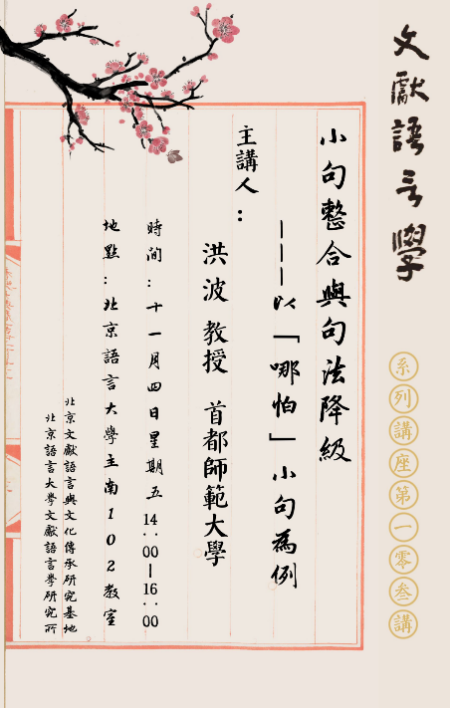 文獻語言學
系列講座第一零叁講
小句整合與句法降級
———以「哪怕」小句為例
主講人：
洪波 教授 首都師範大學
時間：十一月四日星期五 14：00—16：00
地點：北京語言大學主南102教室
北京文獻語言與文化傳承研究基地
北京語言大學文獻語言學研究所